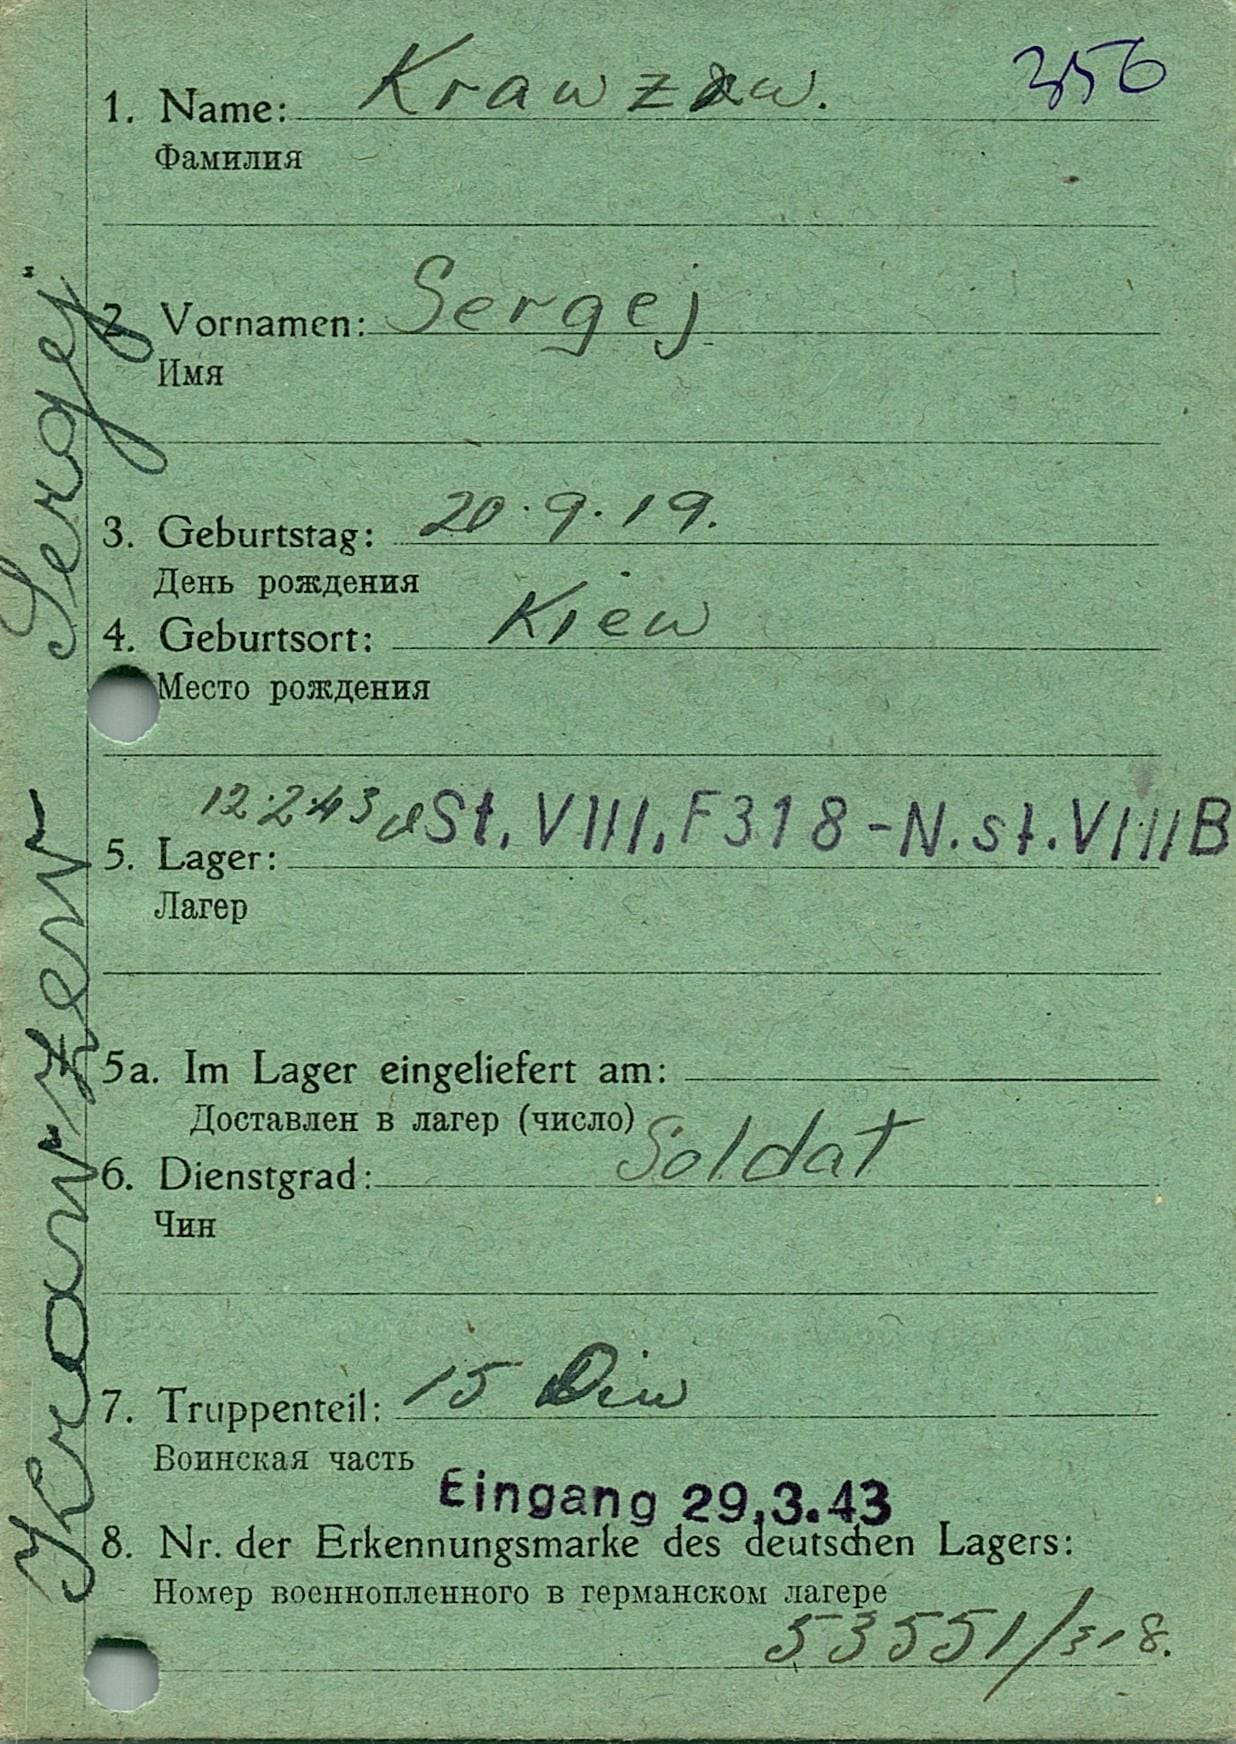 356
1. Name: Krawzew.
Фамилия
2. Vornamen: Sergej
Имя
3. Geburtstag: 20.9.19.
День рождения
4. Geburtsort: Kiew
Место рождения
12.2.43 St. VIII. F 318 - N. st. VIII B
5. Lager:
Лагер
5a. Im Lager eingeliefert am:
Доставлен в лагер (число)
6. Dienstgrad: Soldat
Чин
7. Truppenteil: 15 Diw
Воинская часть
Eingang 29.3.43
8. Nr. der Erkennungsmarke des deutschen Lagers:
Номер военнопленного в германском лагере
53551/318.
Krawzew Sergej